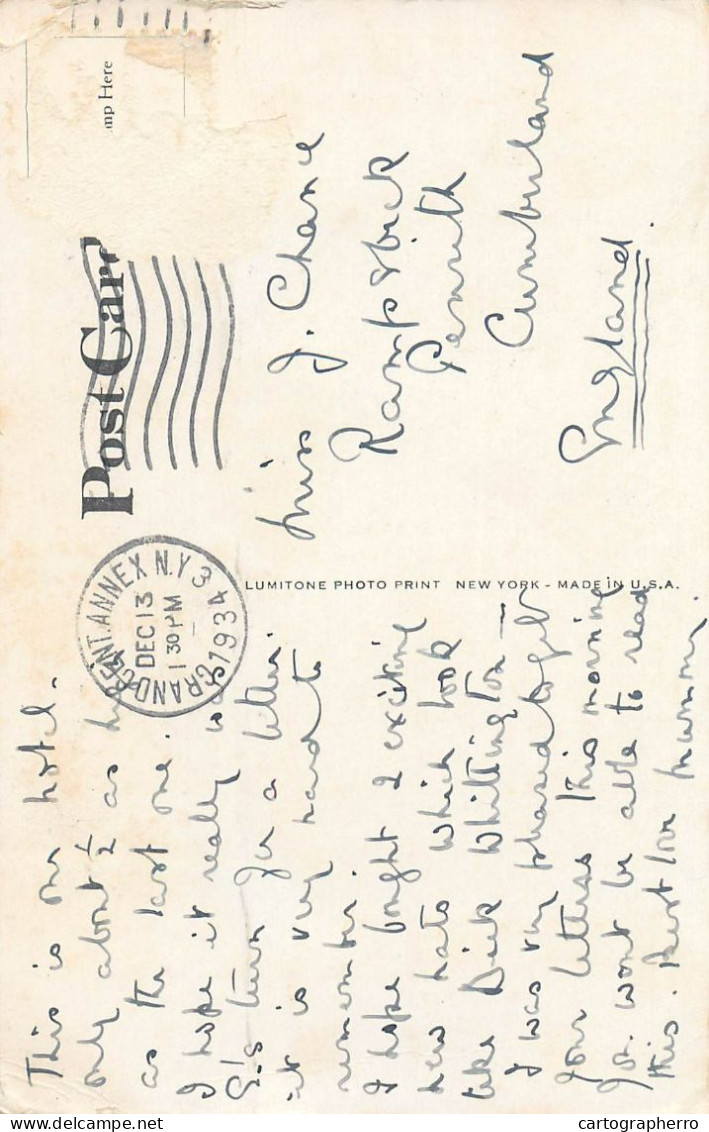 mp Here
Post Card
GRAND CENT. ANNEX N.Y. 3
DEC 13
1 30 PM
1934
This is our hotel.
only about ½ as
as the last one.
I hope it really is
G's turn for a letter.
it is very hard to
remember.
I have bought 2 exciting
new hats which look
like Dick Whittington —
I was very pleased to get
your letters this morning
You wont be able to read
this. Best love Mummy.
LUMITONE PHOTO PRINT NEW YORK - MADE IN U.S.A.
Miss J. Chance
Rampsbeck
Penrith
Cumberland
England
cartographerro